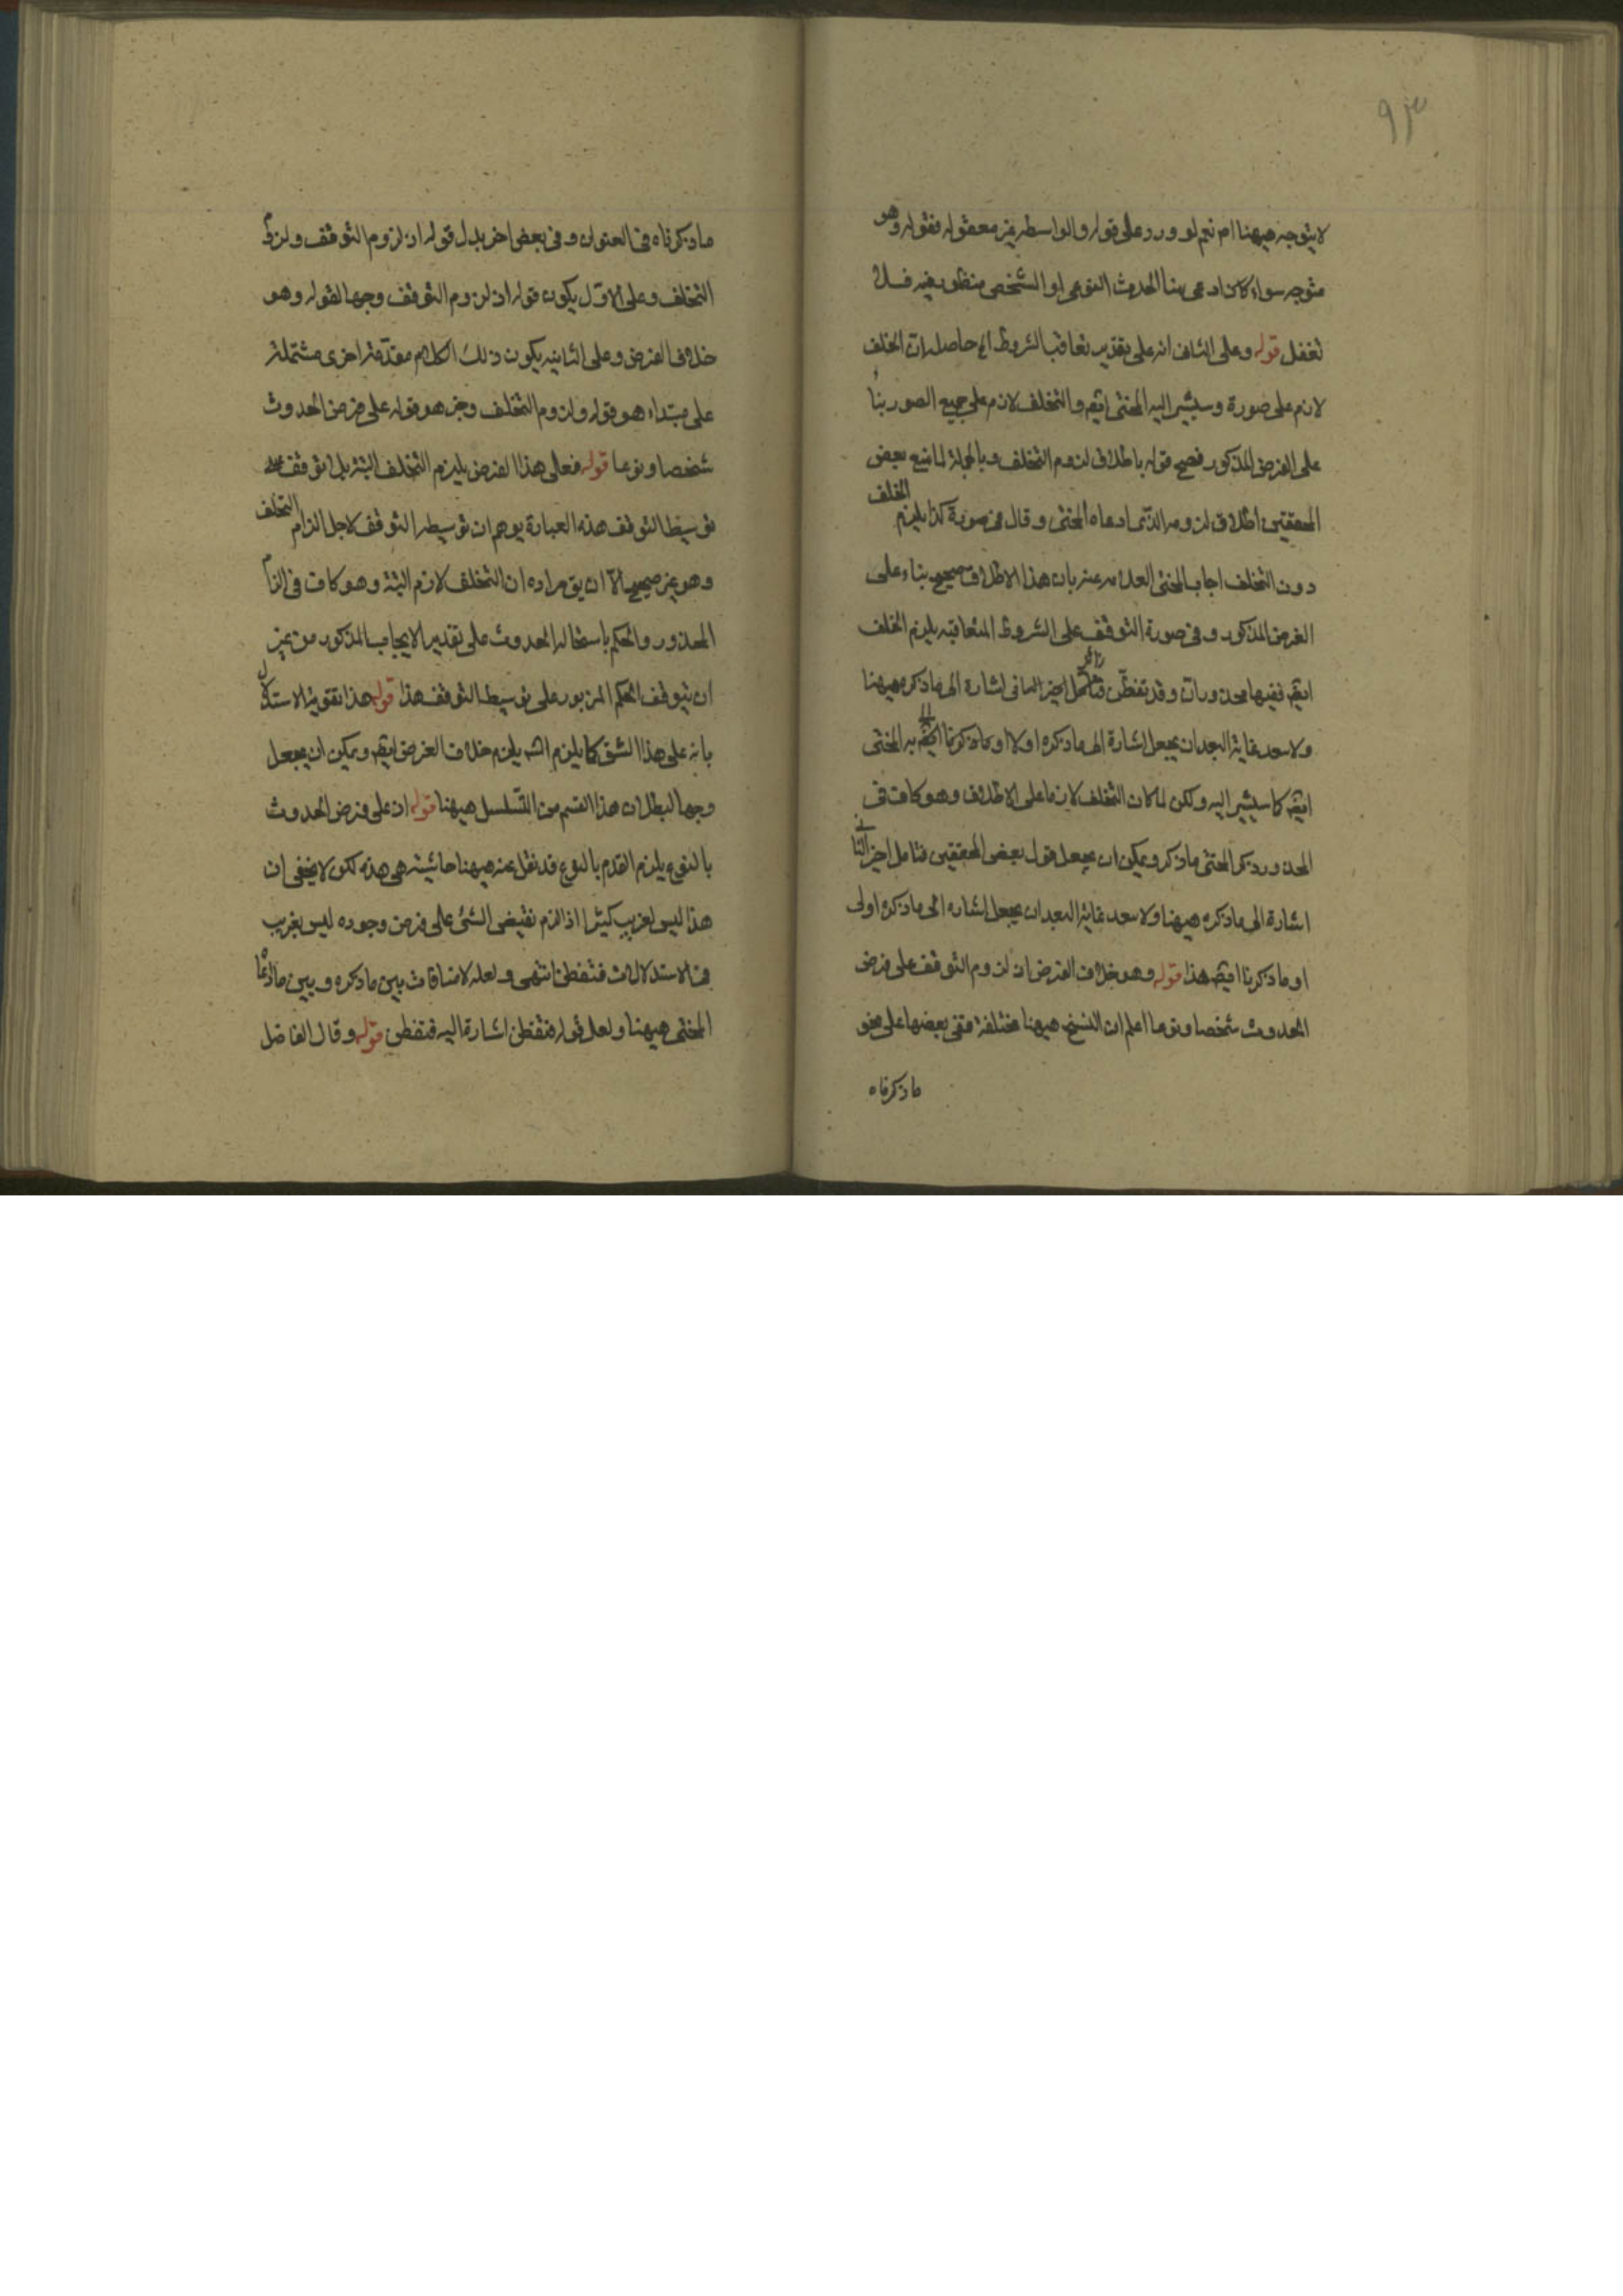 ٩٣
لا يتوجه هيهنا ام نعم لو ورد على قوله والواسطه غير معقوله فقوله وهو
متوجه سواء كان ادعى هنا الحدوث النوعى او الشخصى منظور فيه فلا
تغفل قوله وعلى الثانى انه على تقدير تعاقب الشروط الخ حاصله ان الخلف
لازم على صورة وسيشير اليه المحشى ايضا والتخلف لازم على جميع الصور بناء
على الفرض المذكور فصح قوله باطلاق لزوم التخلف وبالجملة لما منع بعض
المحققين اطلاق لزوم ما ادعاه المحشى وقال فى صورة كذا يلزم الخلف
دون التخلف اجاب المحشى العلامه عنه بان هذا الاطلاق صحيح بناء على
الفرض المذكور وفى صورة التوقف على الشروط المتعاقبه يلزم الخلف
ايضا ففيها محذوران وقد تفطن اشارة الى ما ذكره هيهنا
ولا يبعد غاية البعد ان يجعل اشارة الى ما ذكره اولا او ما ذكرنا به المحشى
ايضا كما سيشير اليه ولكن لما كان التخلف لازما على الاطلاق وهو كاف فى
المحذور ذكر المحشى ما ذكر ويمكن ان يجعل قول بعض المحققين فتامل اخر الثانى
اشارة الى ما ذكره هيهنا ولا يبعد غاية البعد ان يجعل اشاره الى ما ذكره اولى
او ما ذكرنا ايضا هذا قوله وهو خلاف الفرض ان لزوم التوقف على فرض
الحدوث شخصا ونوعا اعلم ان النسخ هيهنا مختلفة ففى بعضها على نحو
ما ذكرناه
ما ذكرناه فى العنوان وفى بعض اخر بدل قوله ان لزوم التوقف ولزوم
التخلف وعلى الاول يكون قوله ان لزوم التوقف وجها لقوله وهو
خلاف الفرض وعلى الثانيه يكون ذلك الكلام مقدمة اخرى مشتملة
على مبتداء هو قوله ولزوم التخلف وخبر هو قوله على فرض الحدوث
شخصا ونوعا قوله فعلى هذا الفرض يلزم التخلف البتة بلا توقف على
توسيط التوقف هذه العبارة يوهم ان توسيط التوقف لاجل الزام التخلف
وهو غير صحيح الا ان يق مراده ان التخلف لازم البتة وهو كاف فى الزام
المحذور والحكم باستحالة الحدوث على تقدير الايجاب المذكور من غير
ان يتوقف الحكم المزبور على توسيط التوقف هذا قوله هذا تقوية الاستدلال
بانه على هذا الشق كما يلزم التسـ يلزم خلاف الفرض ايضا ويمكن ان يجعل
وجها لبطلان هذا القسم من التسلسل هيهنا قوله ان على فرض الحدوث
بالنوع يلزم القدم بالنوع قد نقل عنه هيهنا حاشية هى هذه لكن لا يخفى ان
هذا ليس لغريب كثيرا اذ الزم نقيض الشئ على فرض وجوده ليس بغريب
فى الاستدلالات فتفطن انتهى ولعله لا منافات بين ما ذكره وبين ما ادعاه
المحشى هيهنا ولعل قوله فتفطن اشارة اليه فتفطن قوله وقال الفاضل